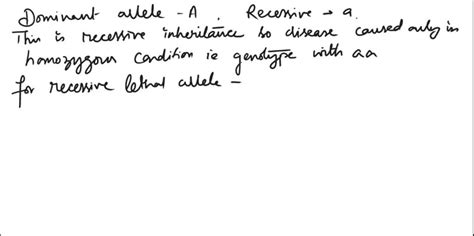 Dominant allele - A , Recessive → a.
This is recessive inheritance so disease caused only in
homozygous condition ie genotype with aa
for recessive lethal allele -